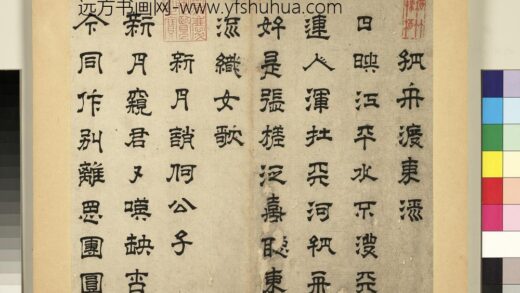 远方书画网-www.yfshuhua.com
舟渡東流
日映江平水不天
連人渾在天河舟
好是張槎泛聽東
流織女歌
新月何公子
新月窺君又嘆缺
今同作別離思團圓